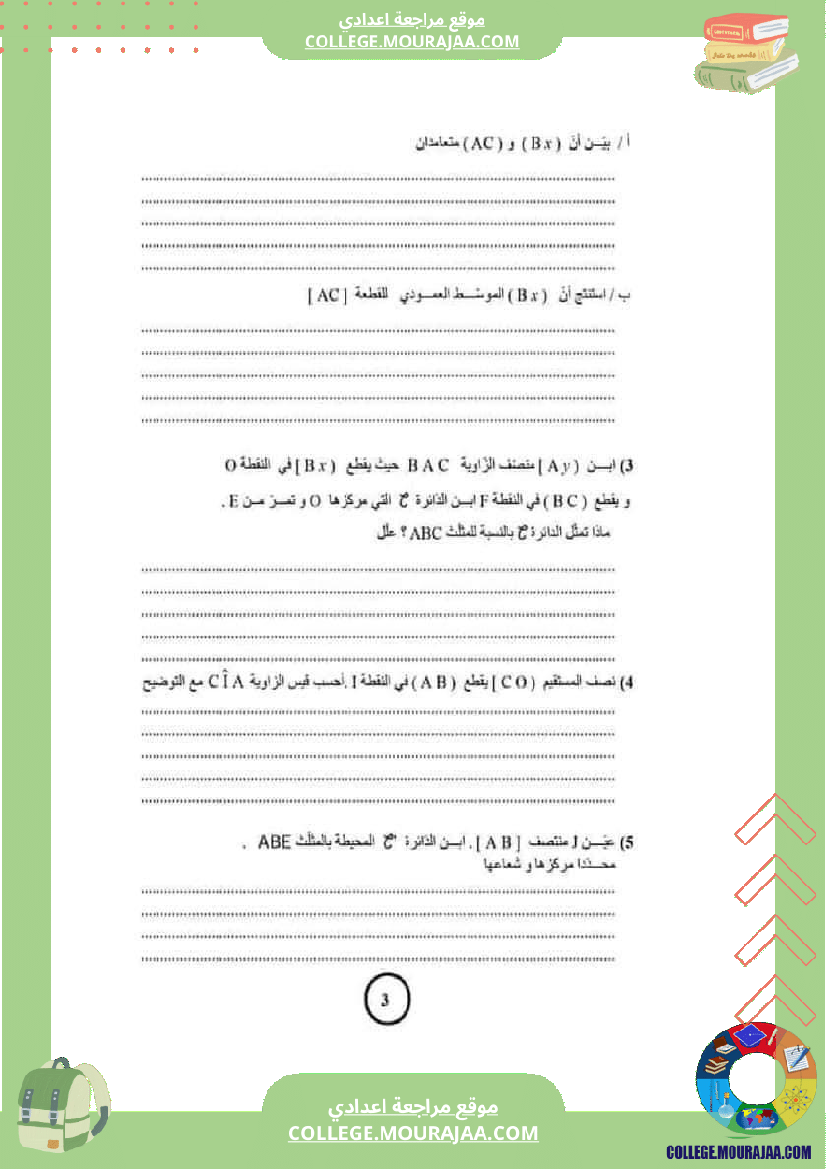 موقع مراجعة اعدادي
COLLEGE.MOURAJAA.COM
أ / بيّــن أنّ ( Bx ) و ( AC ) متعامدان
ب / استنتج أنّ ( Bx ) الموسّــط العمــودي للقطعة [ AC ]
3) ابــن ( Ay ] منصف الزّاوية B A C حيث يقطع ( Bx ] في النقطة O
و يقطع ( BC ) في النقطة F ابــن الدّائرة ﺡ التي مركزها O و تمــرّ مــن E .
ماذا تمثّل الدائرة ﺡ بالنسبة للمثلّث ABC ؟ علّل
4) نصف المستقيم ( CO ] يقطع ( A B ) في النقطة I .أحسب قيس الزاوية C Î A مع التوضيح
5) عيّــن J منتصف [ A B ] . ابــن الدّائرة ﺡ' المحيطة بالمثلّث ABE .
محــدّدا مركزها و شعاعها
3
موقع مراجعة اعدادي
COLLEGE.MOURAJAA.COM
COLLEGE.MOURAJAA.COM